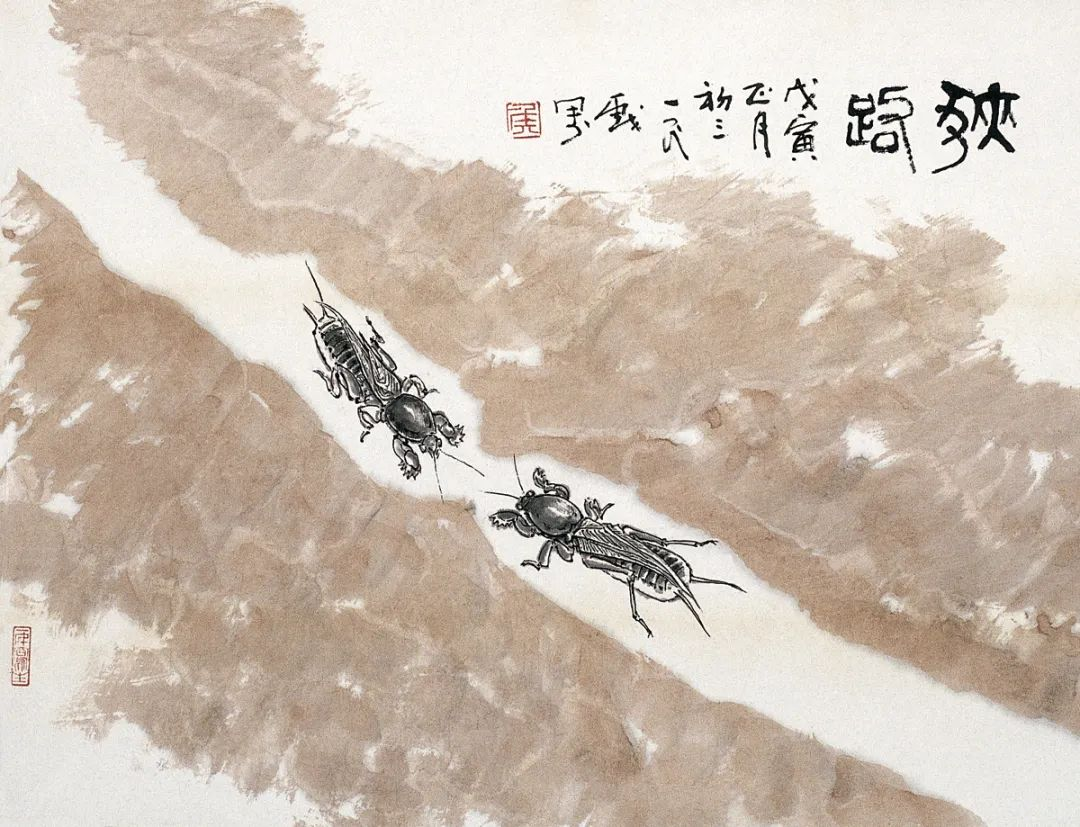 狹路
戊寅
正月
初三
一民
戲
墨